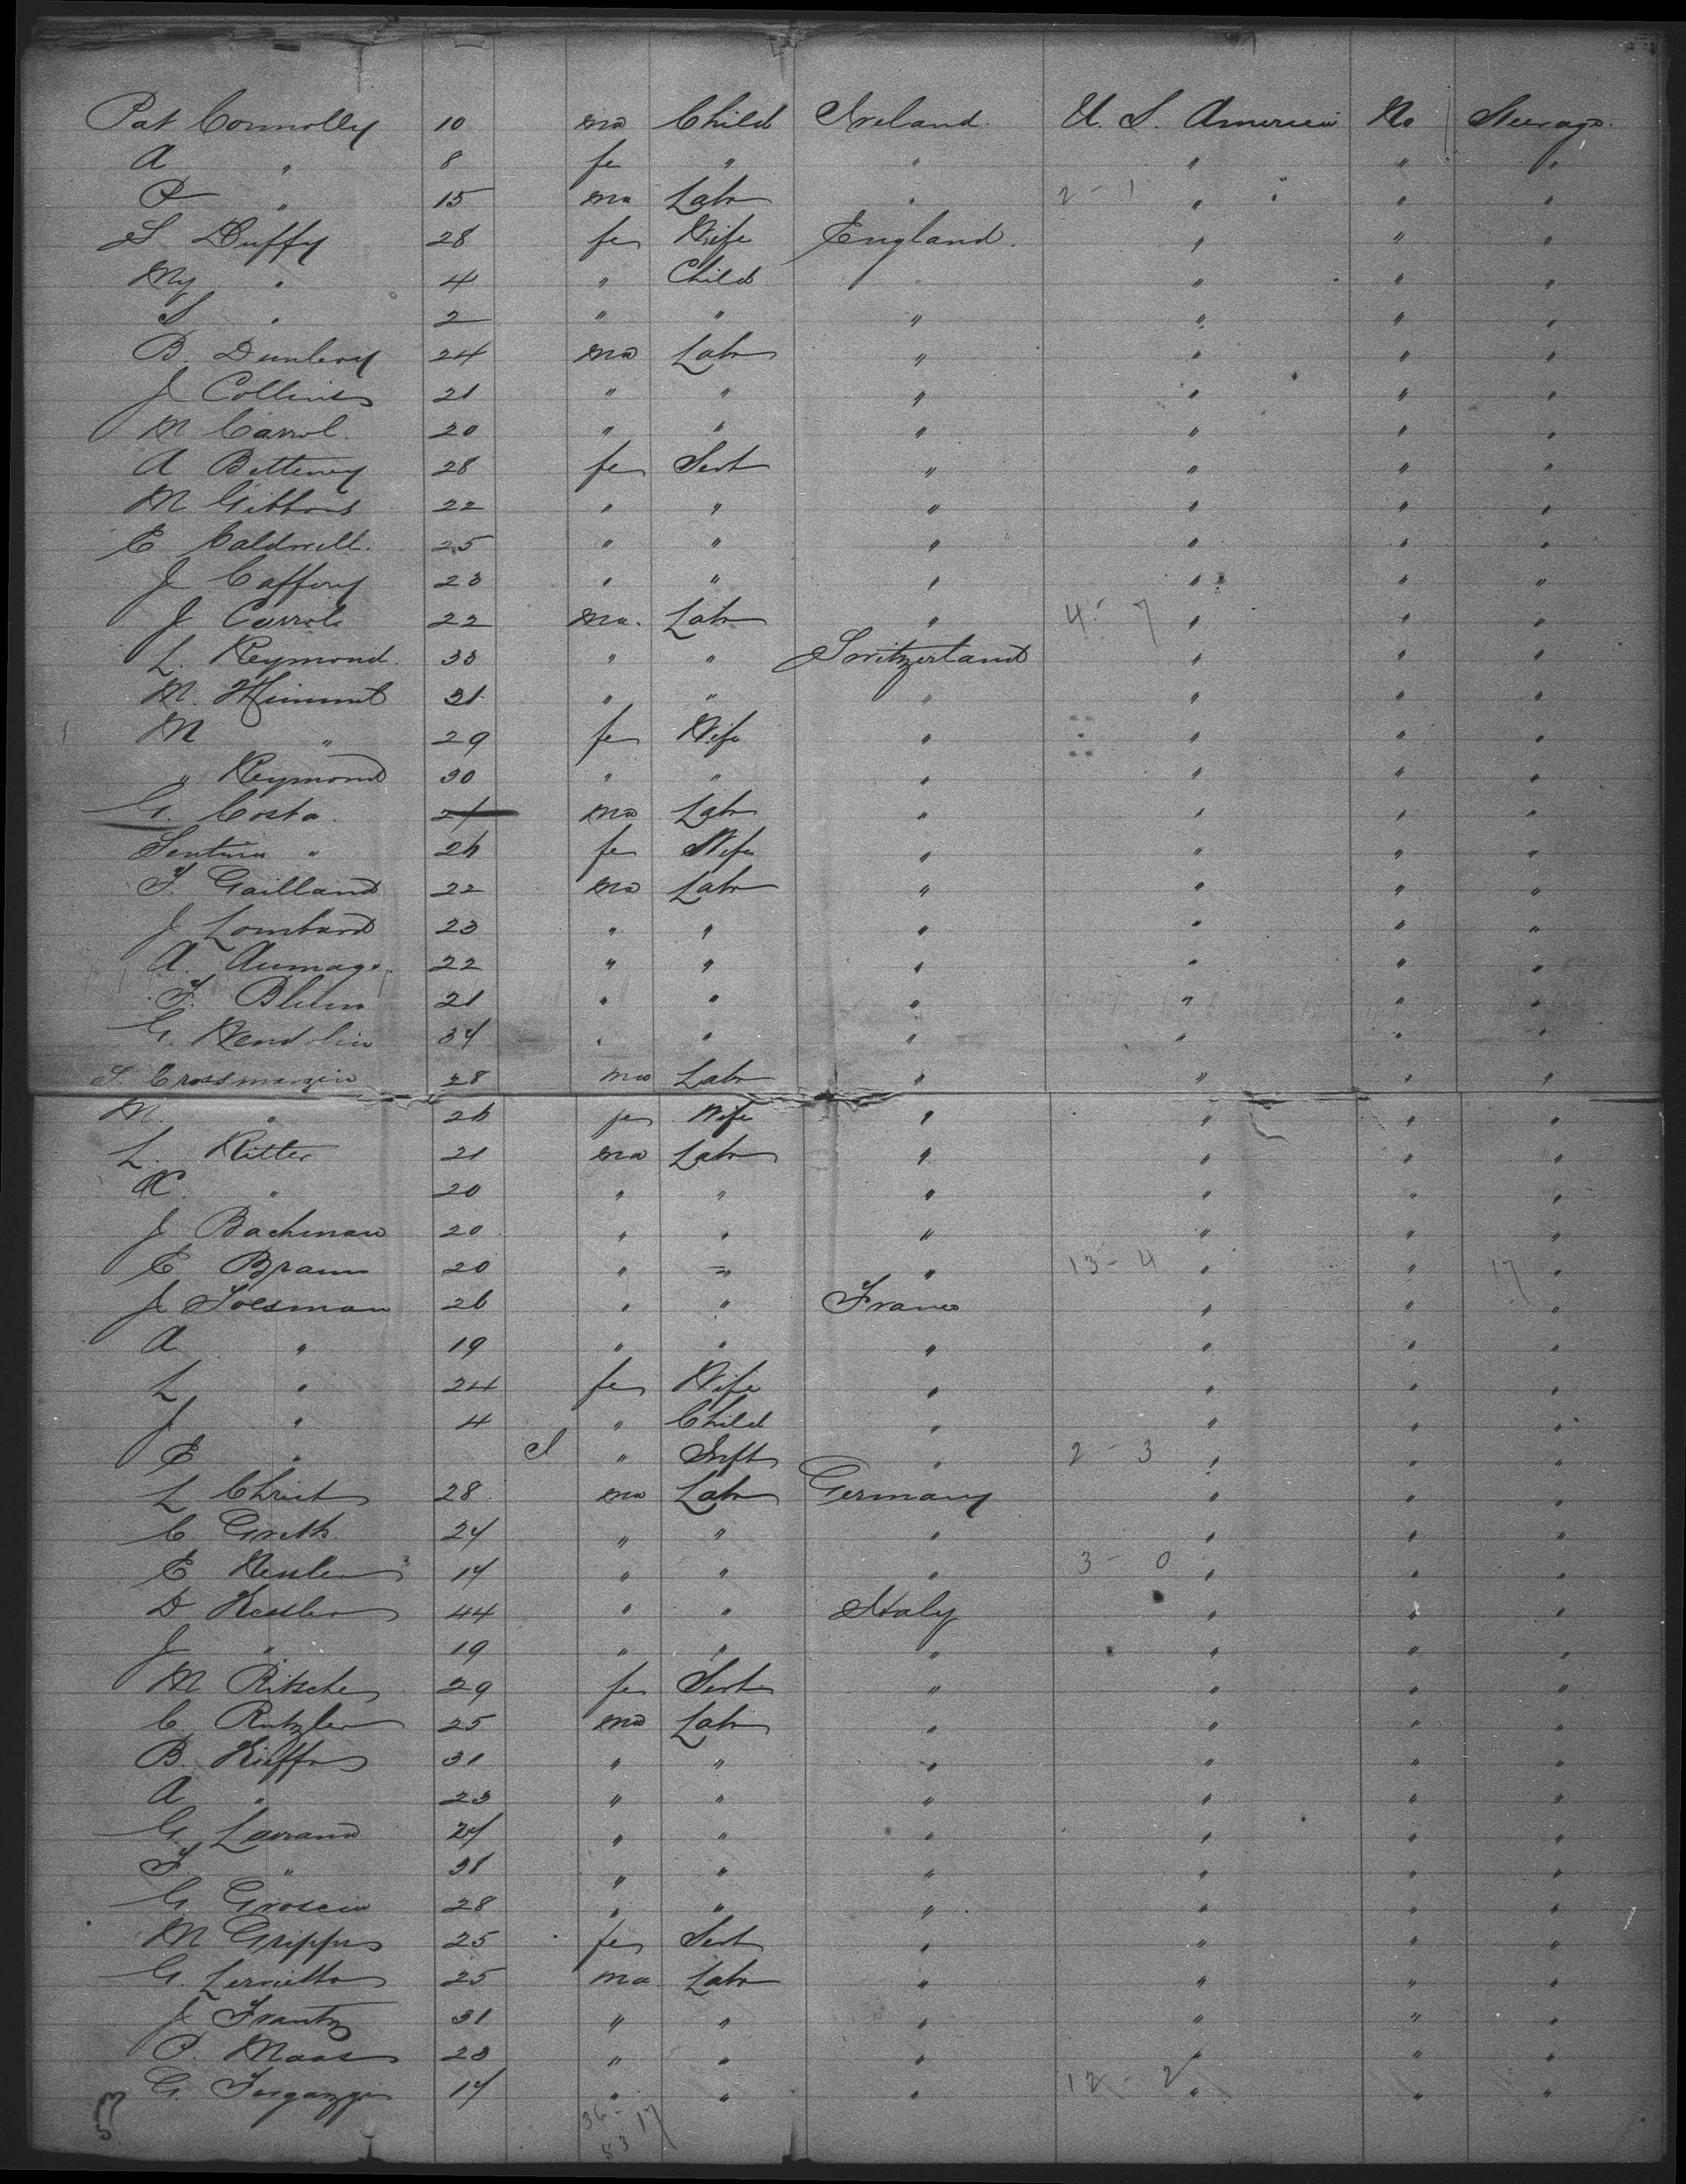 Pat Connolly 10 ma Child Ireland. U. S. America No Steerage.
A " 8 fe " " " " "
P " 15 ma Labr " 2 - 1 " " "
S Duffy 28 fe Wife England. " " "
My " 4 " Child " " " "
S " 2 " " " " " "
B. Dunlevy 24 ma Labr " " " "
J Collins 21 " " " " " "
M Carrol. 20 " " " " " "
A Betteney 28 fe Sert " " " "
M Gibbons 22 " " " " " "
E Caldwell. 25 " " " " " "
J Caffery 23 " " " " " "
J Carrol 22 ma. Labr " 4 - 7 " " "
L. Reymond. 33 " " Switzerland " " "
M. Himmel 31 " " " " " "
M " 29 fe Wife " " " "
" Reymond 30 " " " " " "
G. Costa. 24 ma Labr " " " "
" 26 fe Wife " " " "
F. Gailland 22 ma Labr " " " "
J Lombard 23 " " " " " "
A. 22 " " " " " "
F. Blum 21 " " " " " "
G. Wendolin 34 " " " " " "
S. 28 ma Labr " " " "
M. " 26 fe Wife " " " "
L. Ritter 21 ma Labr " " " "
" 20 " " " " " "
J Bachman 20 " " " " " "
E Braun 20 " " " 13 - 4 " " 17 "
J 26 " " France " " "
A " 19 " " " " " "
L " 24 fe Wife " " " "
J " 4 " Child " " " "
E " " Inft " 2 - 3 " " "
L Christ 28 ma Labr Germany " " "
C Greth 24 " " " " " "
E 14 " " " 3 - 0 " " "
D Kessler 44 " " Italy " " "
J " 19 " " " " " "
M Ritsche 29 fe Sert " " " "
C. 25 ma Labr " " " "
B. Kieffer 31 " " " " " "
A " 23 " " " " " "
G. 24 " " " " " "
F. " 31 " " " " " "
G 28 " " " " " "
M 25 fe Sert " " " "
G. 25 ma Labr " " " "
J Frantz 31 " " " " " "
P. Maas 23 " " " " " "
G. 14 " " " 12 - 2 " " "
53 36 - 17
53